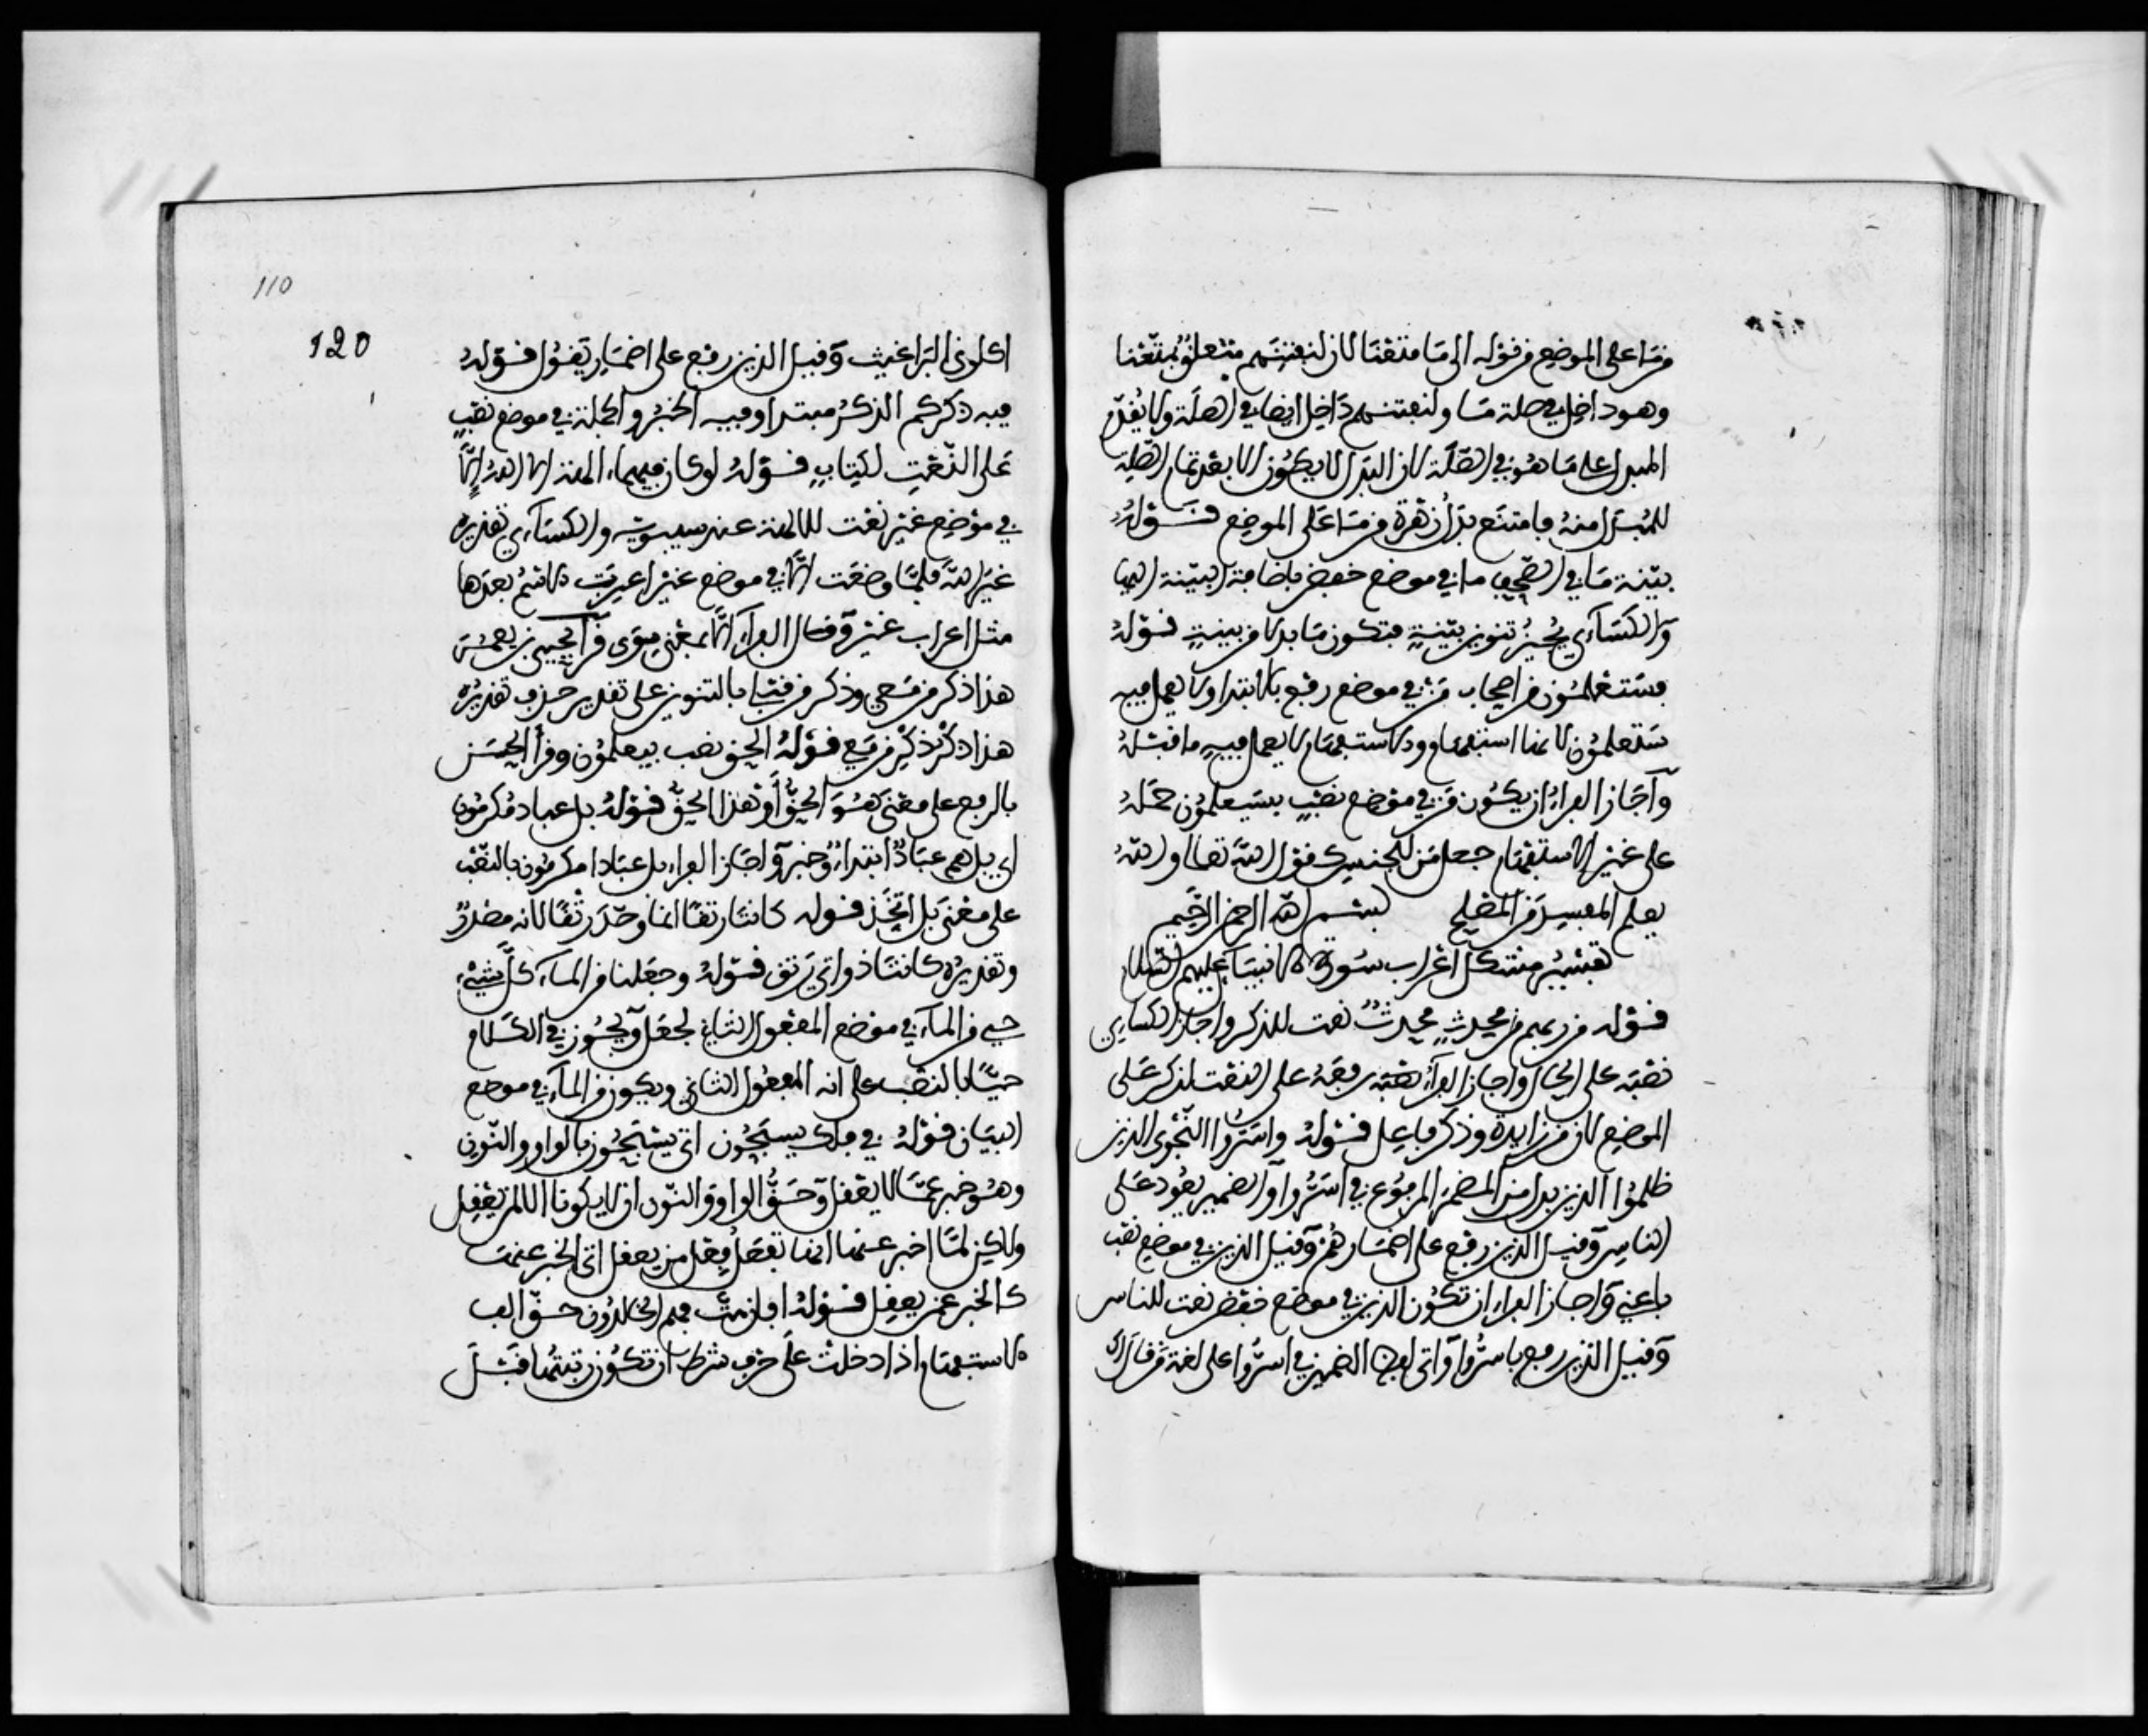 من ما على الموضع من قوله الى ما متعنا لان لنفتنهم متعلق بمتعنا
وهو داخل في صلة ما ولنفتنهم داخل ايضا في الصلة ولا يقدم
المبدل على ما هو في الصلة لان البدل لا يكون الا بعد تمام الصلة
للمبدل منه فامتنع بدل زهرة من ما على الموضع قوله
بينة ما في الصحف ما في موضع خفض باضافة البينة اليها
والكسائي يجيز تنوين بينة فتكون ما بدلا من بينة قوله
فستعلمون من اصحاب من في موضع رفع بالابتداء ولا يعمل فيه
ستعلمون لانها استفهام والاستفهام لا يعمل فيه ما قبله
واجاز الفراء ان يكون من في موضع نصب بستعلمون حمله
على غير الاستفهام جعل من للجنس كقول الله تعالى والله
يعلم المفسد من المصلح بسم الله الرحمن الرحيم
تفسير مشكل اعراب سورة الانبياء عليهم السلام
قوله من ربهم من محدث محدث نعت للذكر واجاز الكسائي
نصبه على الحال واجاز الفراء رفعه على النعت لذكر على
الموضع لان من زايدة وذكر فاعل قوله واسروا النجوى الذين
ظلموا الذين بدل من المضمر المرفوع في اسروا والضمير يعود على
الناس وقيل الذين رفع على اضمار هم وقيل الذين في موضع نصب
باعني واجاز الفراء ان تكون الذين في موضع خفض نعت للناس
وقيل الذين رفع باسروا واتى لفظ الضمير في اسروا على لغة من قال
110
120
اكلوني البراغيث وقيل الذين رفع على اضمار يقول قوله
فيه ذكركم الذكر مبتدا وفيه الخبر والجملة في موضع نصب
على النعت لكتاب قوله لو كان فيهما الهة الا الله الا
في موضع غير نعت للالهة عند سيبويه والكسائي تقديره
غير الله فلما وضعت الا في موضع غير اعرب الاسم بعدها
مثل اعراب غير وقال الفراء الا بمعنى سوى قرا يحيى بن يعمر
هذا ذكر من معي وذكر من قبلي بالتنوين على تقدير حذف تقديره
هذا ذكر ذكر من معي قوله الحق نصب بيعلمون وقرأ الحسن
بالرفع على معنى هو الحق أو هذا الحق قوله بل عباد مكرمون
اي بل هم عباد ابتداء وخبر واجاز الفراء بل عبادا مكرمون بالنصب
على معنى بل اتخذ قوله كانتا رتقا انما وحد رتقا لانه مصدر
وتقديره كانتا ذواتي رتق قوله وجعلنا من الماء كل شيء
حي من الماء في موضع المفعول الثاني لجعل ويجوز في الكلام
حيا بالنصب على انه المفعول الثاني ويكون من الماء في موضع
البيان قوله في فلك يسبحون اتى يسبحون بالواو والنون
وهو خبر عما لا يعقل وحق الواو والنون ان لا يكونا الا لمن يعقل
ولاكن لما اخبر عنها انها تفعل فعل من يعقل اتى الخبر عنها
كالخبر عن من يعقل قوله افاين مت فهم الخالدون حق الف
الاستفهام اذا دخلت على حرف شرط ان تكون رتبتها قبل